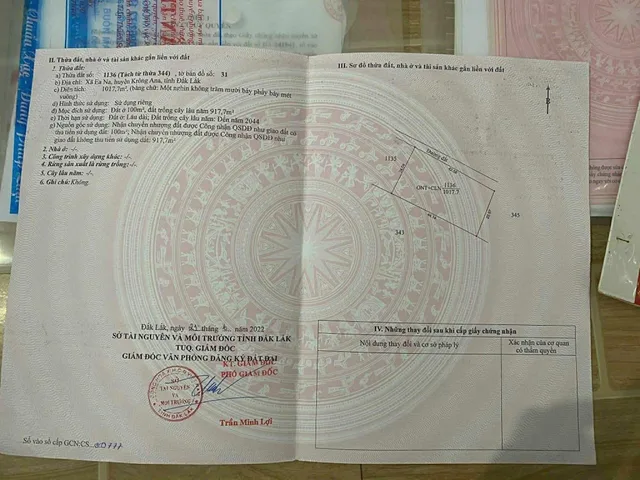 II. Thửa đất, nhà ở và tài sản khác gắn liền với đất
1. Thửa đất:
a) Thửa đất số: 1136 (Tách từ thửa 344) , tờ bản đồ số: 31
b) Địa chỉ: Xã Ea Na, huyện Krông Ana, tỉnh Đắk Lắk
c) Diện tích: 1017,7m², (bằng chữ: Một nghìn không trăm mười bảy phẩy bảy mét
vuông)
d) Hình thức sử dụng: Sử dụng riêng
đ) Mục đích sử dụng: Đất ở 100m², đất trồng cây lâu năm 917,7m²
e) Thời hạn sử dụng: Đất ở: Lâu dài; Đất trồng cây lâu năm: Đến năm 2044
g) Nguồn gốc sử dụng: Nhận chuyển nhượng đất được Công nhận QSDĐ như giao đất có
thu tiền sử dụng đất: 100m²; Nhận chuyển nhượng đất được Công nhận QSDĐ như
giao đất không thu tiền sử dụng đất: 917,7m²
2. Nhà ở: -/-
3. Công trình xây dựng khác: -/-
4. Rừng sản xuất là rừng trồng: -/-
5. Cây lâu năm: -/-
6. Ghi chú: Không.
Đắk Lắk, ngày tháng năm 2022
SỞ TÀI NGUYÊN VÀ MÔI TRƯỜNG TỈNH ĐẮK LẮK
TUQ. GIÁM ĐỐC
GIÁM ĐỐC VĂN PHÒNG ĐĂNG KÝ ĐẤT ĐAI
KT. GIÁM ĐỐC
PHÓ GIÁM ĐỐC
SỞ
TÀI NGUYÊN
VÀ
MÔI TRƯỜNG
TỈNH ĐẮK LẮK
Trần Minh Lợi
Số vào sổ cấp GCN:CS
III. Sơ đồ thửa đất, nhà ở và tài sản khác gắn liền với đất
B
1135
Đường đất
ONT+CLN
1136
1017.7
345
343
IV. Những thay đổi sau khi cấp giấy chứng nhận
Nội dung thay đổi và cơ sở pháp lý
Xác nhận của cơ quan
có thẩm quyền